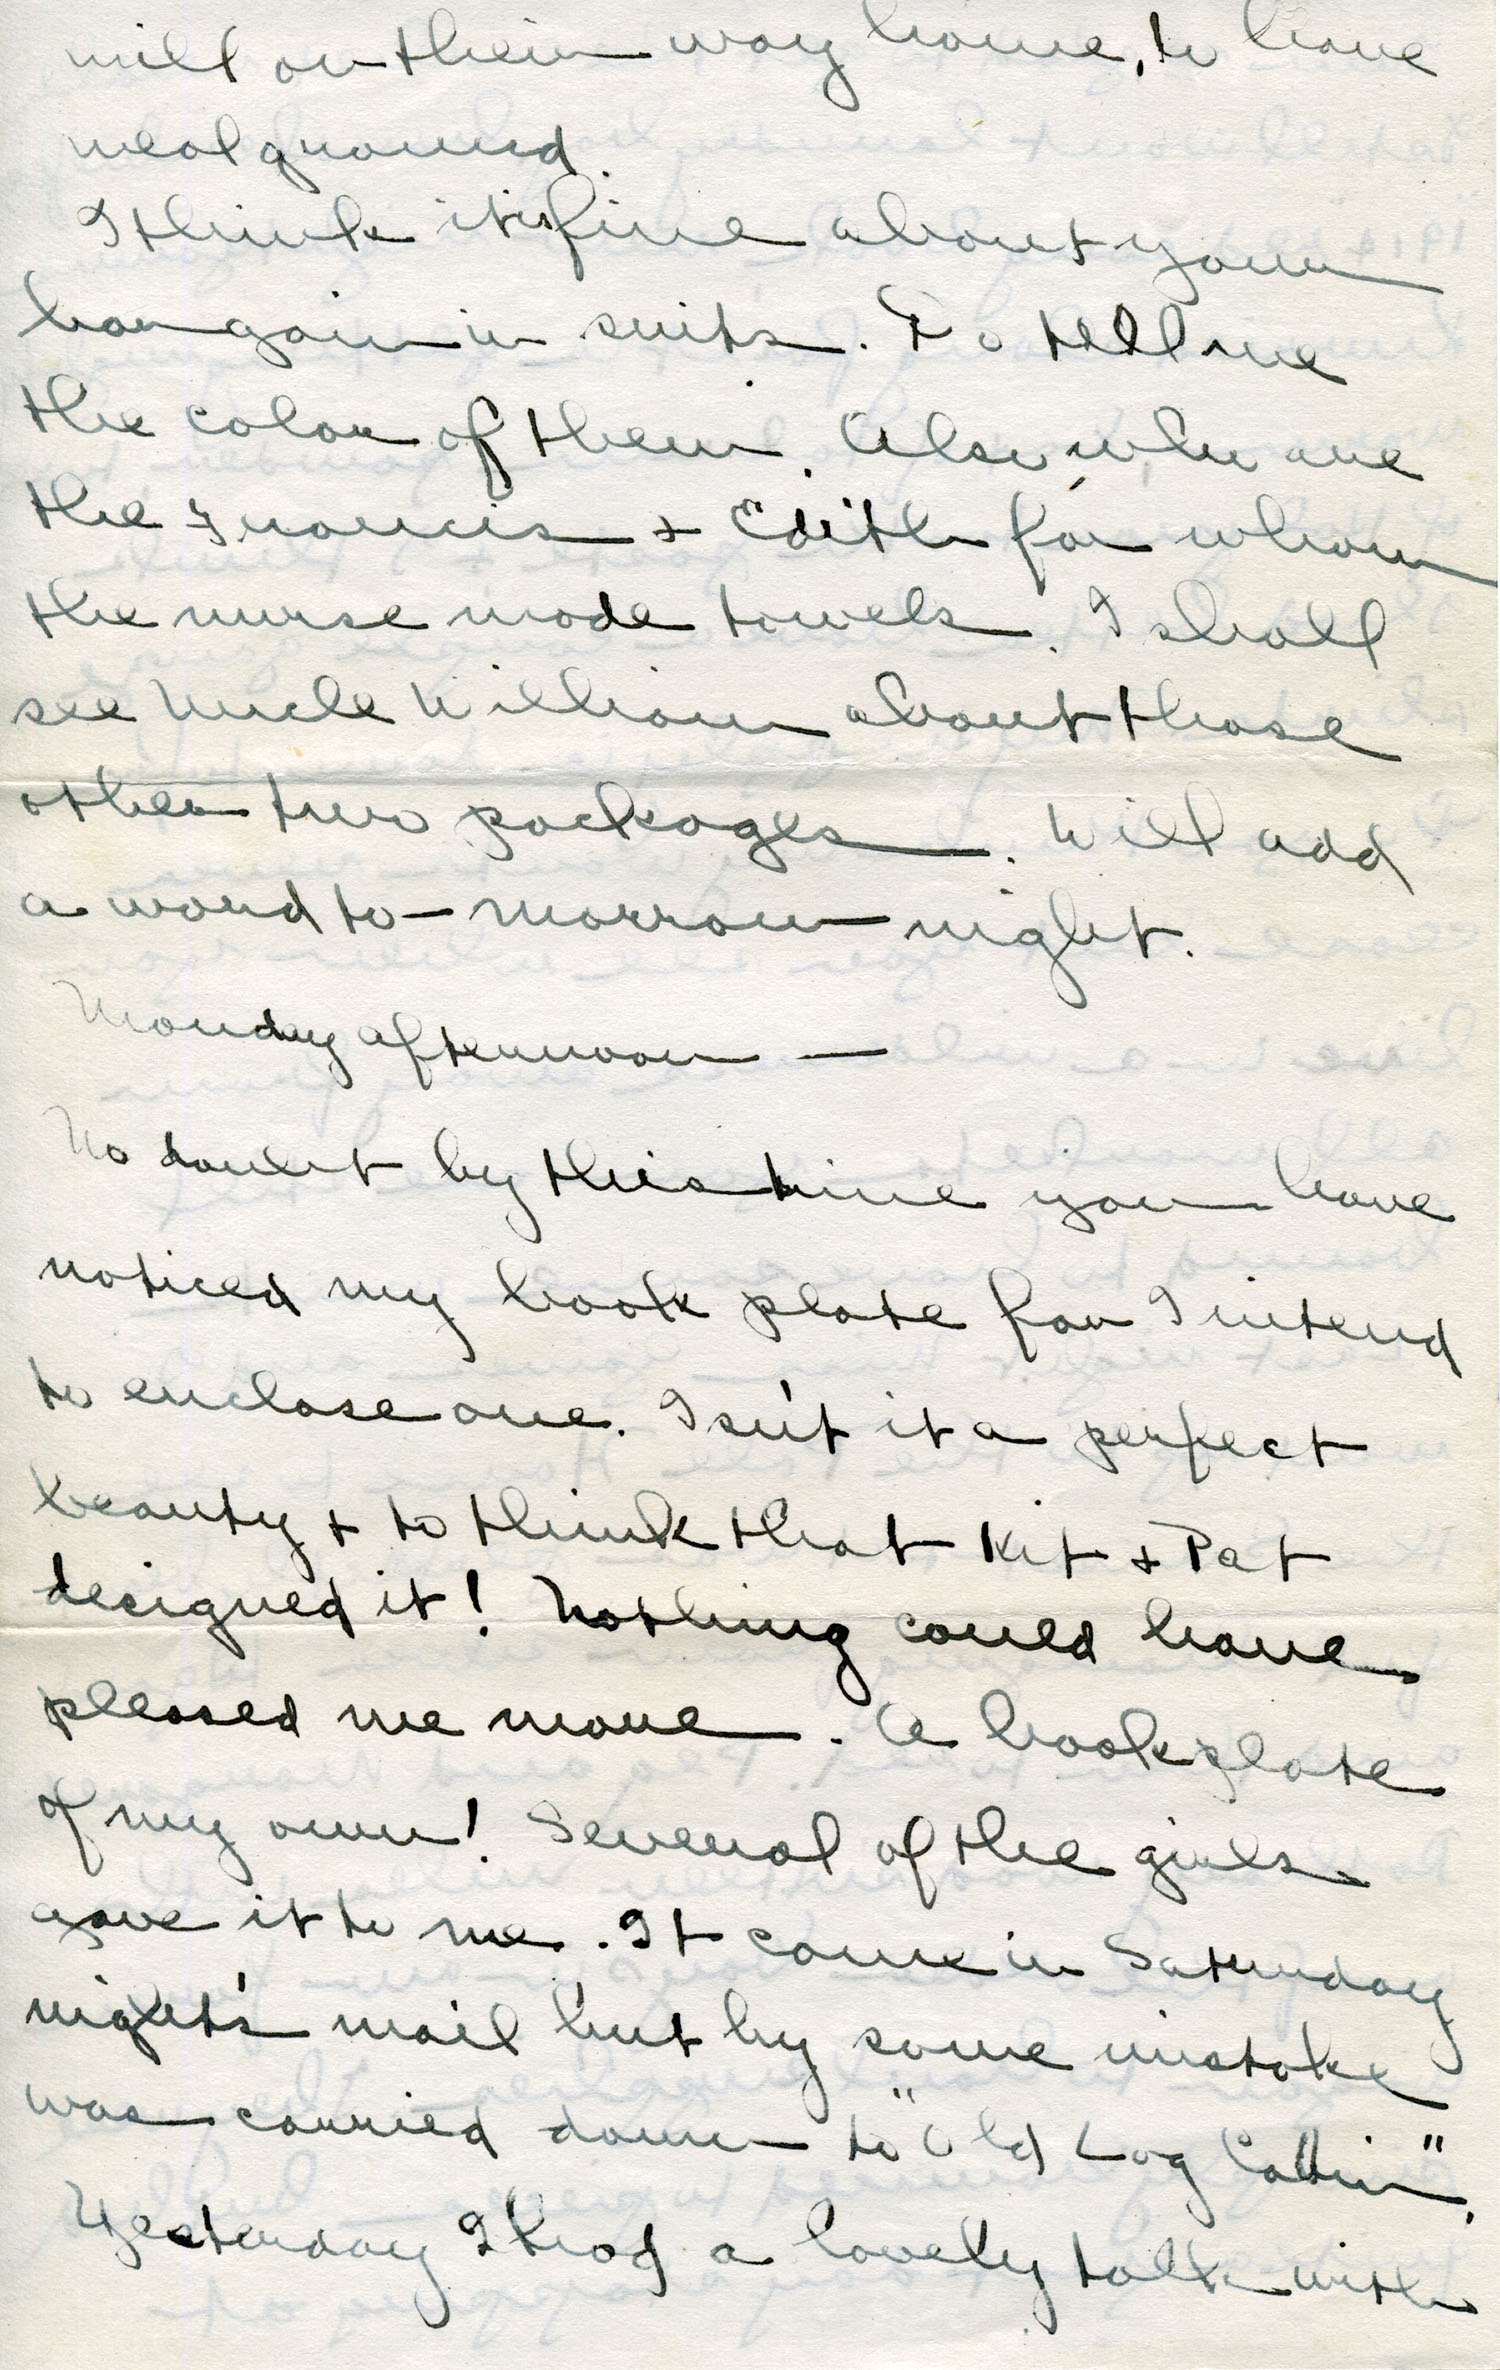 mill on their way home, to have
meal ground.
I think it is fine about your
bargain in suits. Do tell me
the color of them. Also who are
the Francis + Edith for whom
the nurse made towels. I shall
see Uncle William about those
other two packages. Will add
a word to-morrow night.
Monday afternoon —
No doubt by this time you have
noticed my book plate for I intend
to enclose one. Isn't it a perfect
beauty + to think that Kit + Pat
designed it! Nothing could have
pleased me more. A book plate
of my own! Several of the girls
gave it to me. It came in Saturday
night's mail but by some mistake
was carried down to "Old Log Cabin".
Yesterday I had a lovely talk with